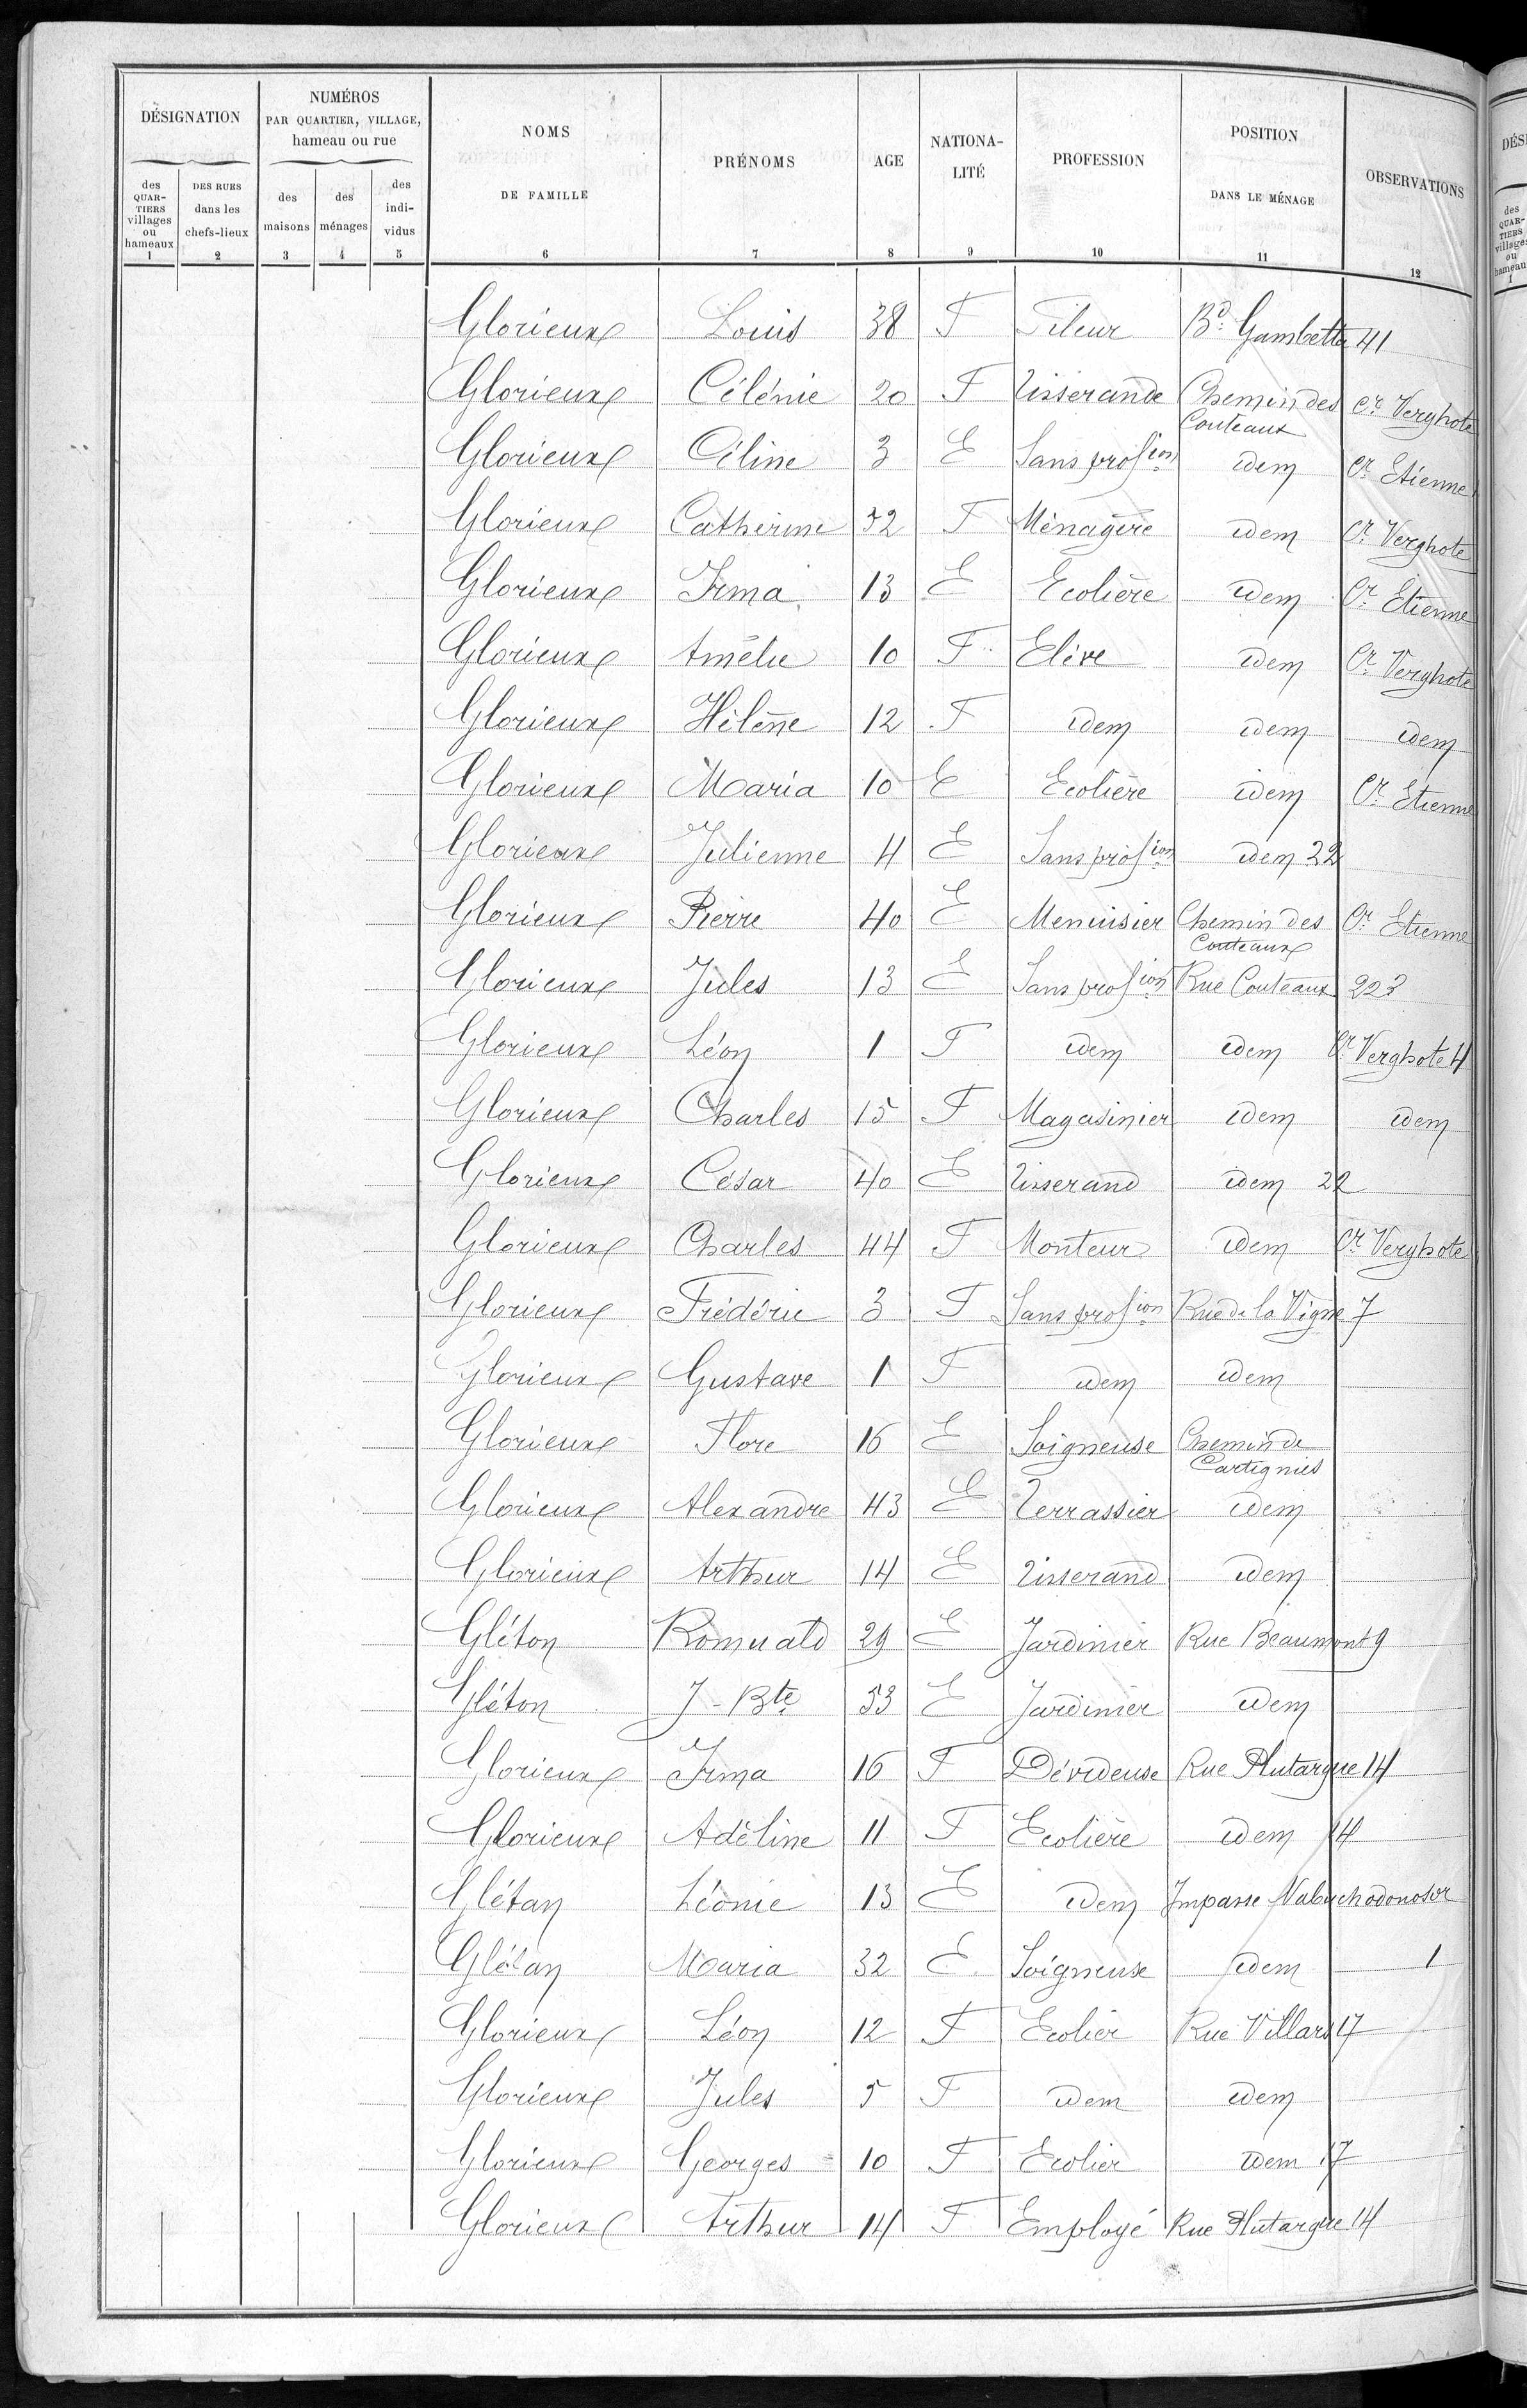 DÉSIGNATION
des QUARTIERS villages ou hameaux
DES RUES dans les chefs-lieux
NUMÉROS
PAR QUARTIER, VILLAGE,
hameau ou rue
des maisons
des ménages
des individus
NOMS
DE FAMILLE
PRÉNOMS
AGE
NATIONA-
LITÉ
PROFESSION
POSITION
DANS LE MÉNAGE
OBSERVATIONS
1 2 3 4 5 6 7 8 9 10 11 12
Glorieux Louis 38 F Fileur Bd. Gambetta 41
Glorieux Célénie 20 F Tisserande Chemin des Couteaux Cr. Verghote
Glorieux Céline 3 E Sans profion idem Cr. Etienne
Glorieux Catherine 52 F Ménagère idem Cr. Verghote
Glorieux Irma 13 E Ecolière idem Cr. Etienne
Glorieux Amélie 10 F Elève idem Cr. Verghote
Glorieux Hélène 12 F idem idem idem
Glorieux Maria 10 E Ecolière idem Cr. Etienne
Glorieux Julienne 4 E Sans profion idem 22
Glorieux Pierre 40 E Menuisier Chemin des Couteaux Cr. Etienne
Glorieux Jules 13 E Sans profion Rue Couteaux 223
Glorieux Léon 1 F idem idem Cr. Verghote 4
Glorieux Charles 15 F Magasinier idem idem
Glorieux César 40 E Tisserand idem 22
Glorieux Charles 44 F Monteur idem Cr. Verghote
Glorieux Frédéric 3 F Sans profion Rue de la Vigne 7
Glorieux Gustave 1 F idem idem
Glorieux Flore 16 E Soigneuse Chemin de Cartignies
Glorieux Alexandre 43 E Terrassier idem
Glorieux Arthur 14 E Tisserand idem
Gléton Romuald 29 E Jardinier Rue Beaumont 9
Gléton J-Bte 53 E Jardinier idem
Glorieux Irma 16 F Dévideuse Rue Plutarque 14
Glorieux Adéline 11 F Ecolière idem 14
Glétan Léonie 13 E idem Impasse Nabuchodonosor
Glétan Maria 32 E Soigneuse idem 1
Glorieux Léon 12 F Ecolier Rue Villars 17
Glorieux Jules 5 F idem idem
Glorieux Georges 10 F Ecolier idem 17
Glorieux Arthur 14 F Employé Rue Plutarque 14